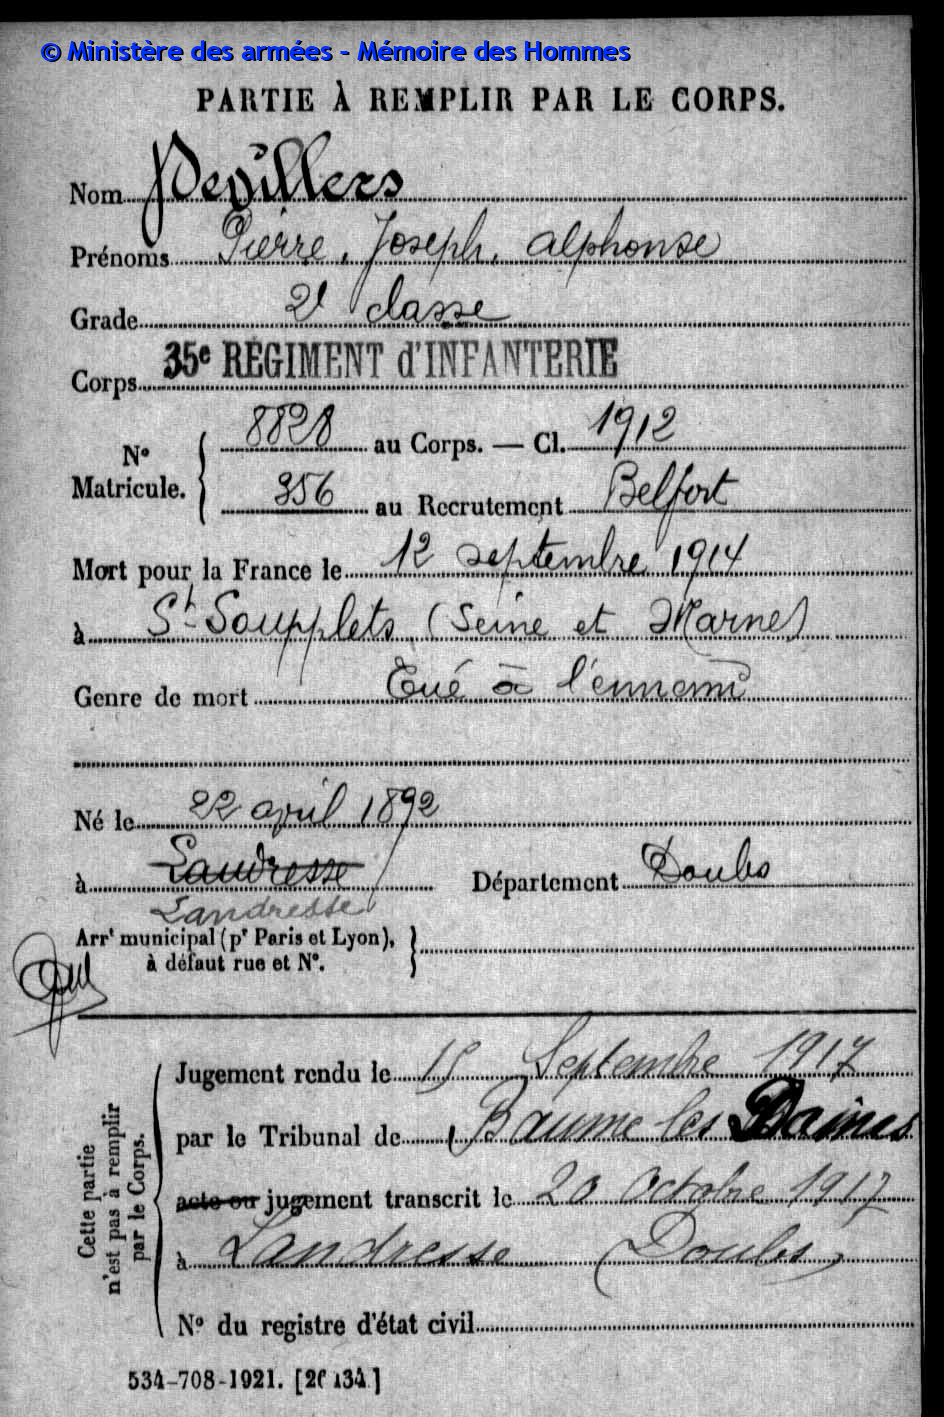 © Ministère des armées - Mémoire des Hommes
PARTIE À REMPLIR PAR LE CORPS.
Nom Devillers
Prénoms Pierre, Joseph, Alphonse
Grade 2e classe
Corps 35e RÉGIMENT d'INFANTERIE
N° Matricule. { 8828 au Corps. — Cl. 1912
356 au Recrutement Belfort
Mort pour la France le 12 septembre 1914
à St Soupplets (Seine et Marne)
Genre de mort Tué à l'ennemi
Né le 22 avril 1892
à Landresse Département Doubs
Landresse
Arrt municipal (pr Paris et Lyon), }
à défaut rue et N°.
Cette partie n'est pas à remplir par le Corps.
Jugement rendu le 15 Septembre 1917
par le Tribunal de Baume les Dames
acte ou jugement transcrit le 20 octobre 1917
à Landresse (Doubs)
N° du registre d'état civil
534-708-1921. [26134.]